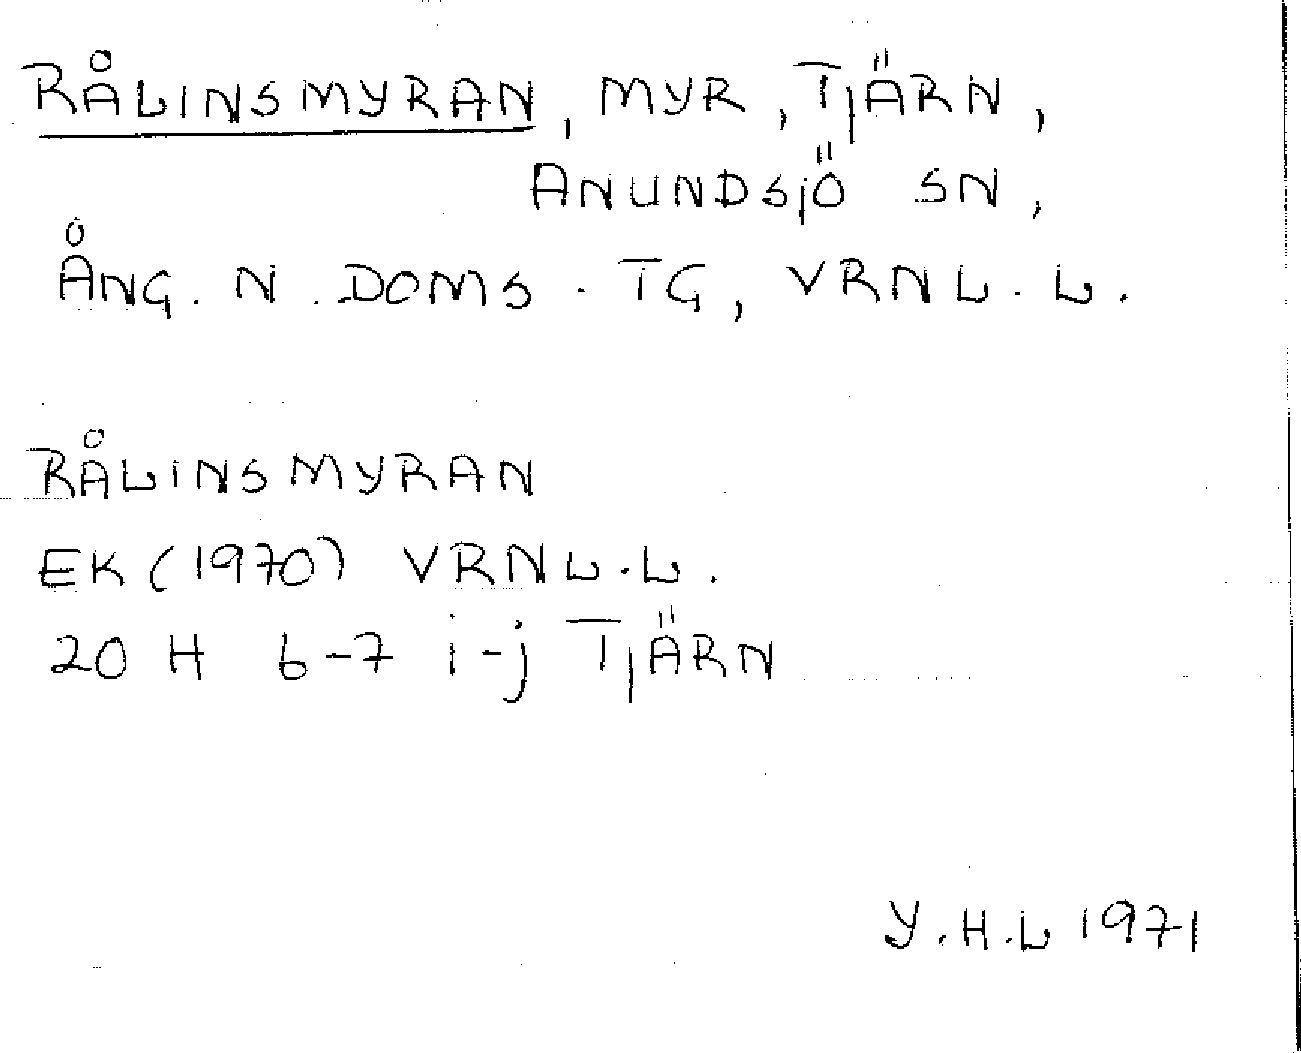 RÅLINSMYRAN, MYR, TJÄRN,
ANUNDSJÖ SN,
ÅNG. N. DOMS. TG, VRNL. L.
RÅLINSMYRAN
EK (1970) VRNL. L.
20 H 6-7 i-j TJÄRN
Y.H.L 1971